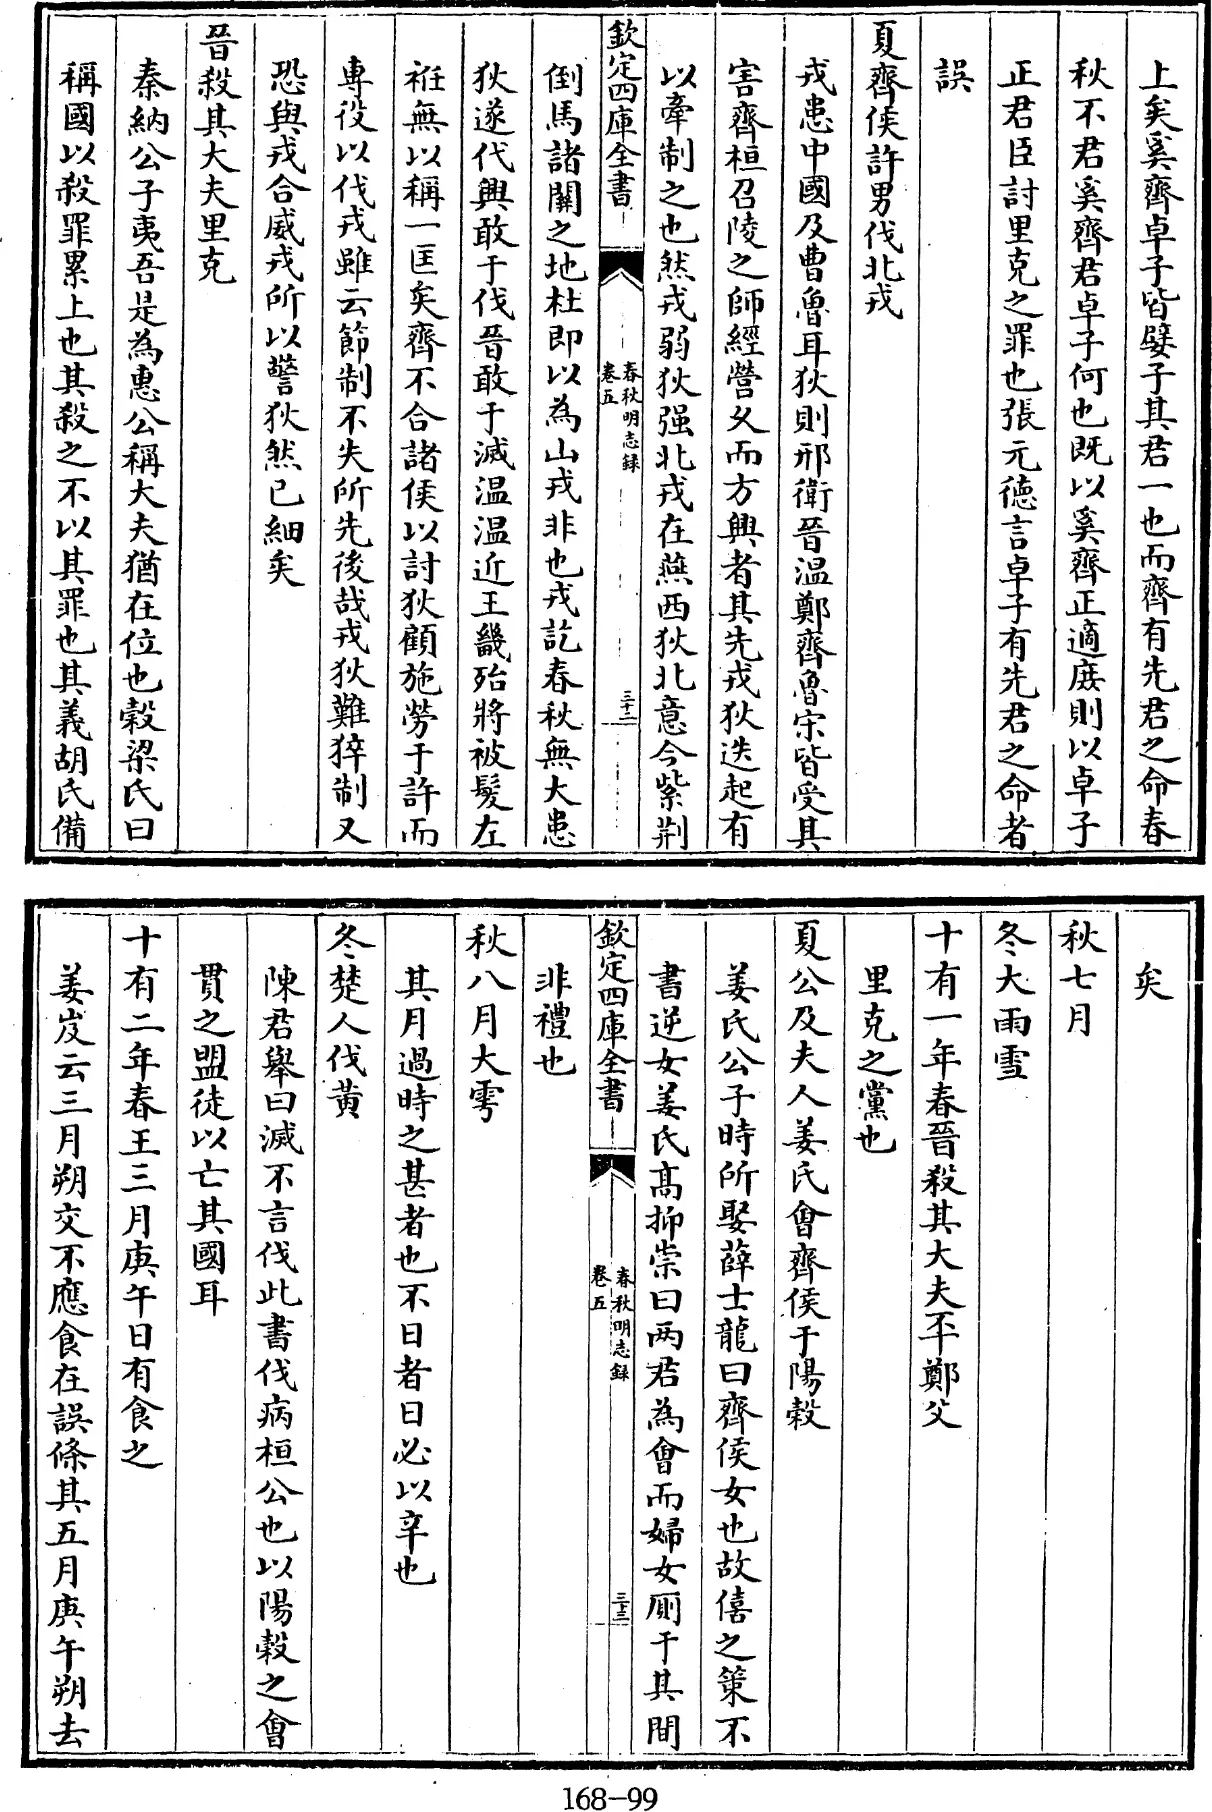 上矣奚齊卓子皆嬖子其君一也而齊有先君之命春
秋不君奚齊君卓子何也既以奚齊正適庶則以卓子
正君臣討里克之罪也張元德言卓子有先君之命者
誤
夏齊侯許男伐北戎
戎患中國及曹魯耳狄則邢衛晉溫鄭齊魯宋皆受其
害齊桓召陵之師經營久而方興者其先戎狄迭起有
以牽制之也然戎弱狄强北戎在燕西狄北意今紫荆
欽定四庫全書
春秋明志録
卷五
三十二
倒馬諸關之地杜即以為山戎非也戎訖春秋無大患
狄遂代興敢于伐晉敢于滅温温近王畿殆將被髮左
袵無以稱一匡矣齊不合諸侯以討狄顧施勞于許而
專役以伐戎雖云節制不失所先後哉戎狄難猝制又
恐與戎合威戎所以警狄然已細矣
晉殺其大夫里克
秦納公子夷吾是為惠公稱大夫猶在位也穀梁氏曰
稱國以殺罪累上也其殺之不以其罪也其義胡氏備
矣
秋七月
冬大雨雪
十有一年春晉殺其大夫丕鄭父
里克之黨也
夏公及夫人姜氏會齊侯于陽穀
姜氏公子時所娶薛士龍曰齊侯女也故僖之策不
書逆女姜氏髙抑崇曰兩君為會而婦女厠于其間
欽定四庫全書
春秋明志録
卷五
三十三
非禮也
秋八月大雩
其月過時之甚者也不日者日必以辛也
冬楚人伐黄
陳君舉曰滅不言伐此書伐病桓公也以陽穀之會
貫之盟徒以亡其國耳
十有二年春王三月庚午日有食之
姜岌云三月朔交不應食在誤條其五月庚午朔去
168-99